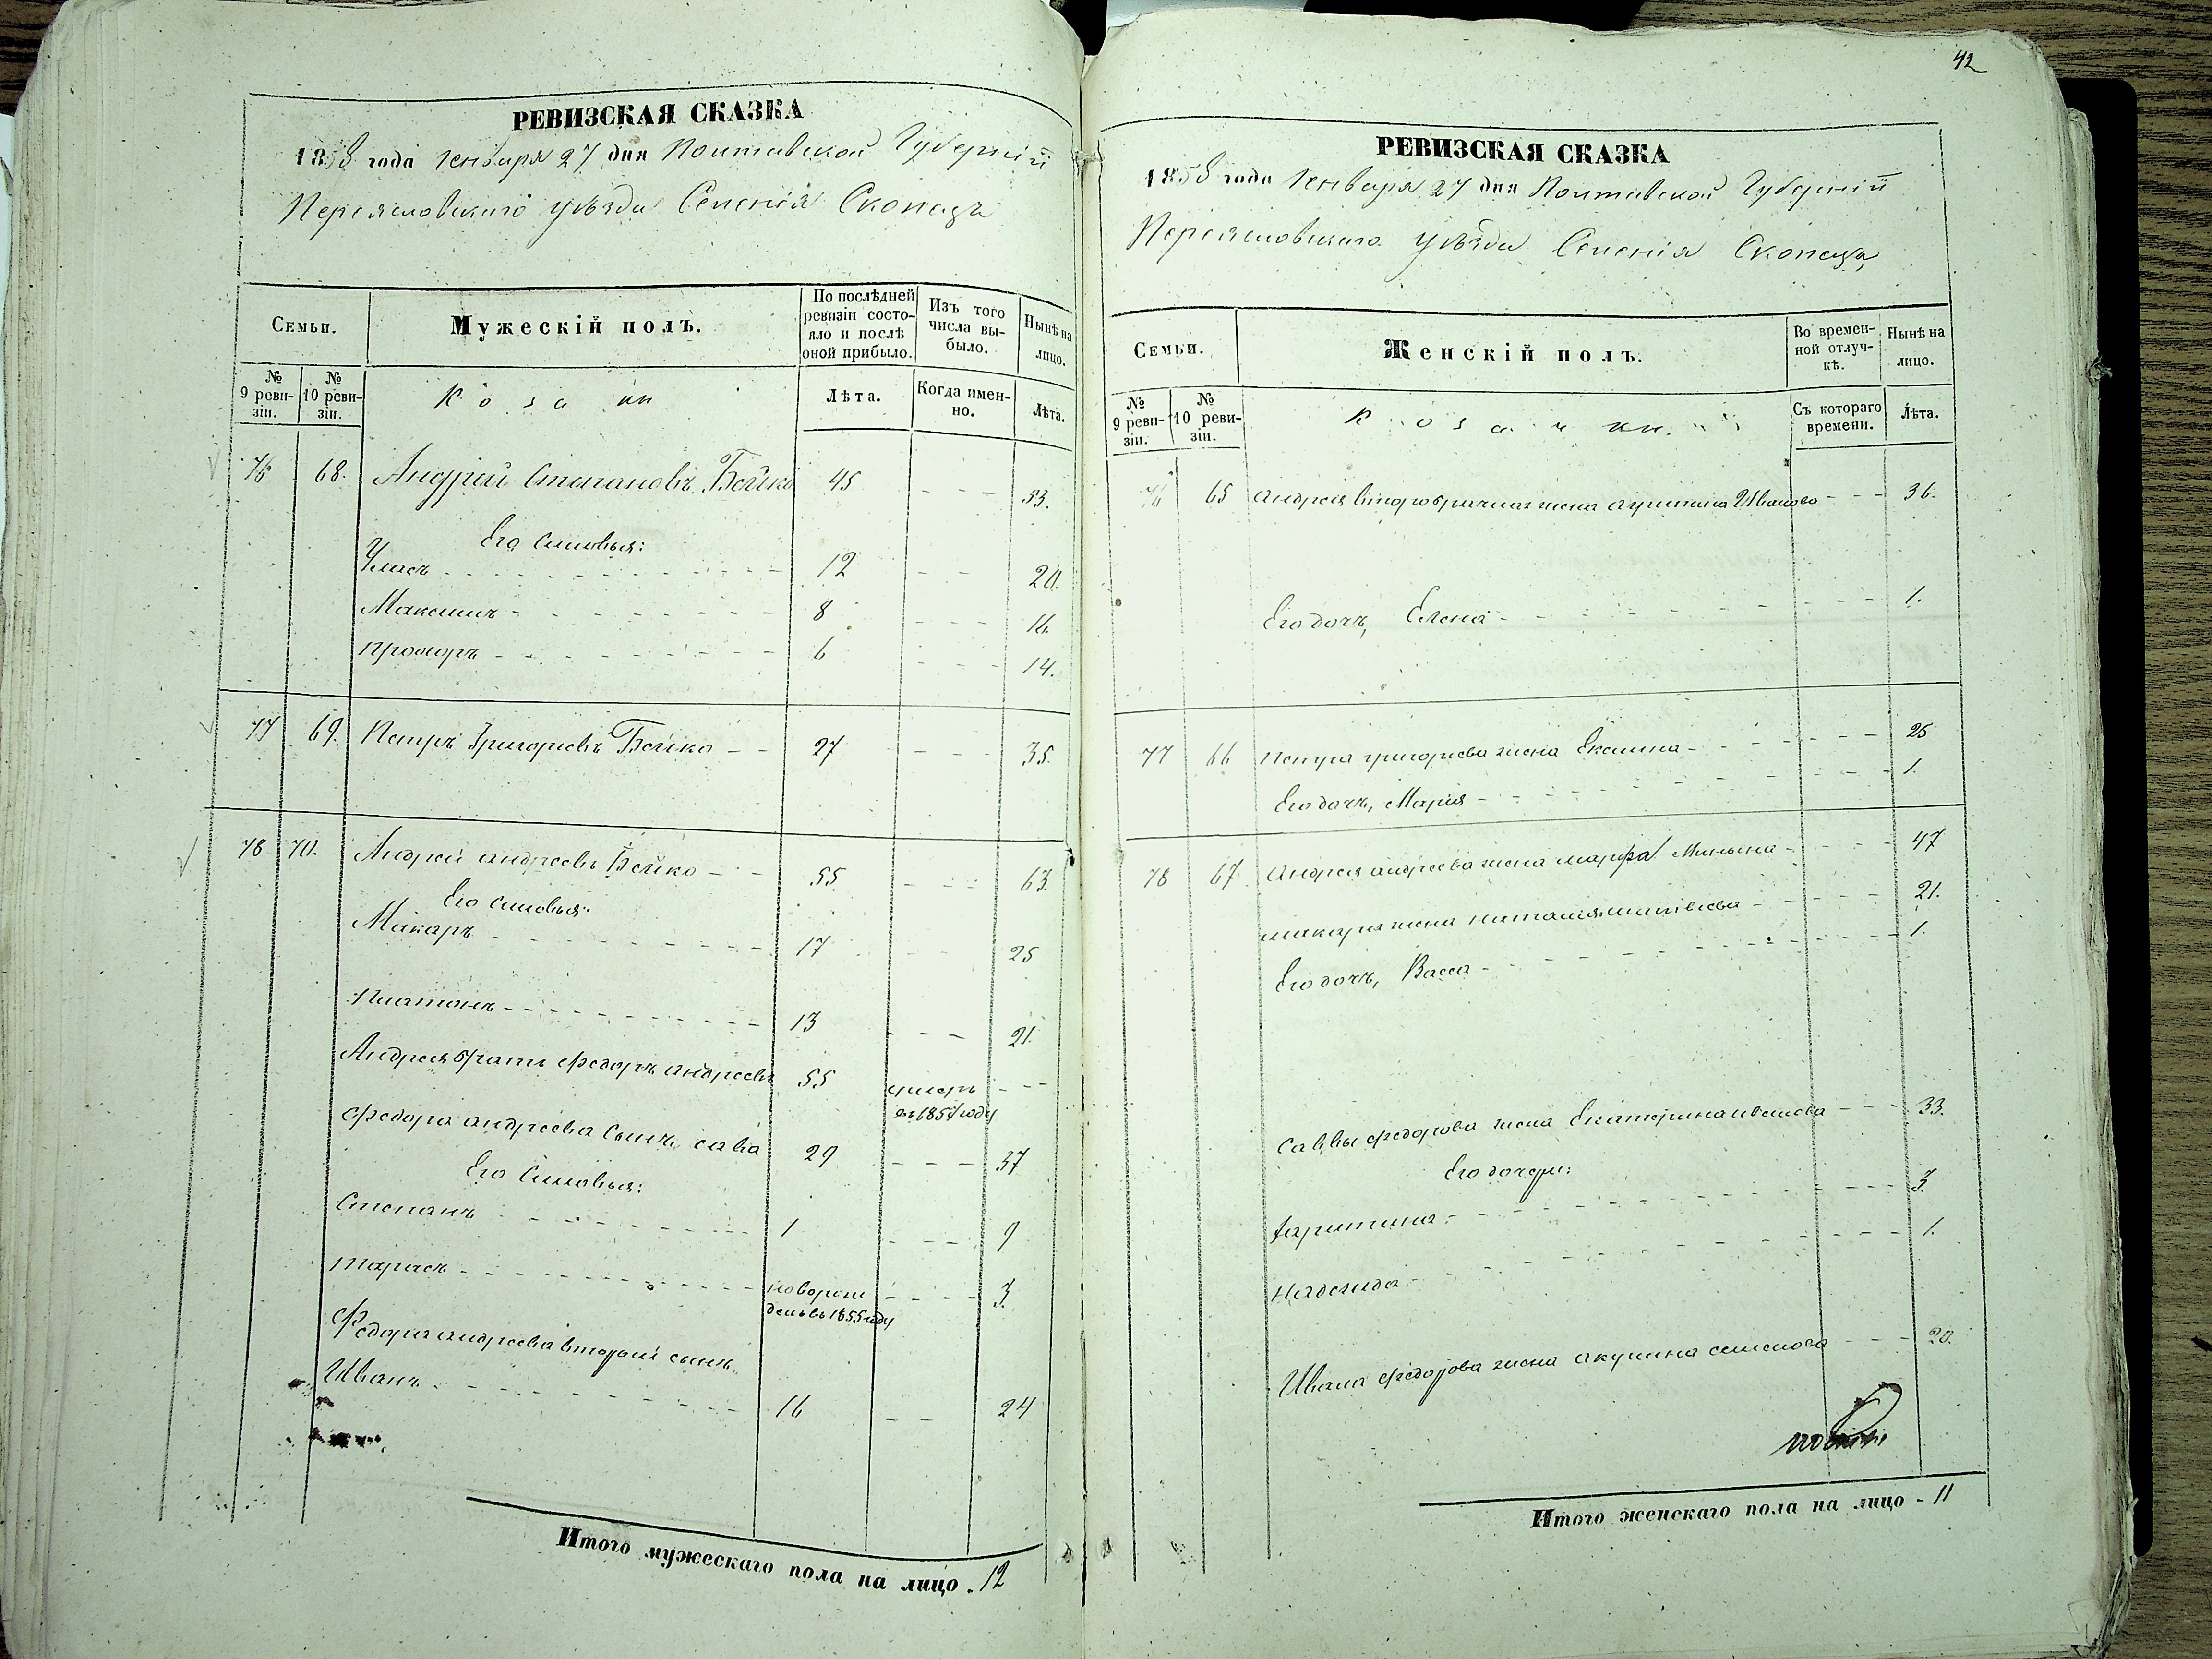 РЕВИЗСКАЯ СКАЗКА
1858 года Генваря 27 дня Полтавской Губерніи
Переясловского уѣзда Селенія Скопецъ
Семьи.
Мужескій полъ.
По послѣдней ревизіи состояло и послѣ оной прибыло.
Изъ того числа выбыло.
Нынѣ на лицо.
№ 9 ревизіи.
№ 10 ревизіи.
Козаки
Лѣта.
Когда именно.
Лѣта.
76 68. Андрей Степановъ Бойко 45 - - - 53.
Его Сыновья:
Уласъ 12 - - 20.
Максимъ 8 - - - 16
Прохоръ 6 - - - 14.
77 69. Петръ Григорьевъ Бойко 27 - - - 35.
78 70. Андрей Андреевъ Бойко 55 - - - 63.
Его Сыновья:
Макаръ 17 - - 25
Платонъ 13 - - - 21.
Андрея братъ Федоръ Андреевъ 55 умеръ - - -
въ 1857 году
Федора Андреева Сынъ, Сава 29 - - - 37
Его Сыновья:
Степанъ 1 - - - 9
Тарасъ новорож - - - - 3.
денъ въ 1855 году
Федора Андреева вторый сынъ
Иванъ 16 - - 24
Итого мужескаго пола на лицо - 12
42
РЕВИЗСКАЯ СКАЗКА
1858 года Генваря 27 дня Полтавской Губерніи
Переясловского уѣзда Селенія Скопецъ
Семьи.
Женскій полъ.
Во временной отлучкѣ.
Нынѣ на лицо.
№ 9 ревизіи.
№ 10 ревизіи.
Козачки
Съ котораго времени.
Лѣта.
76 65 Андрея второбрачная жена Иванова - - - 36.
Его дочь, Елена 1.
77 66 Петра Григорьева жена 25
Его дочь, Марія 1.
78 67 Андрея Андреева жена Марфа 47
Макара жена Наталія 21.
Его дочь, Васса 1.
Саввы Федорова жена Екатерина Иванова - - - 33.
Его дочери:
Харитина 3.
Надежда 1.
Ивана Федорова жена Акулина Семенова - - - 20.
Итого женскаго пола на лицо - 11